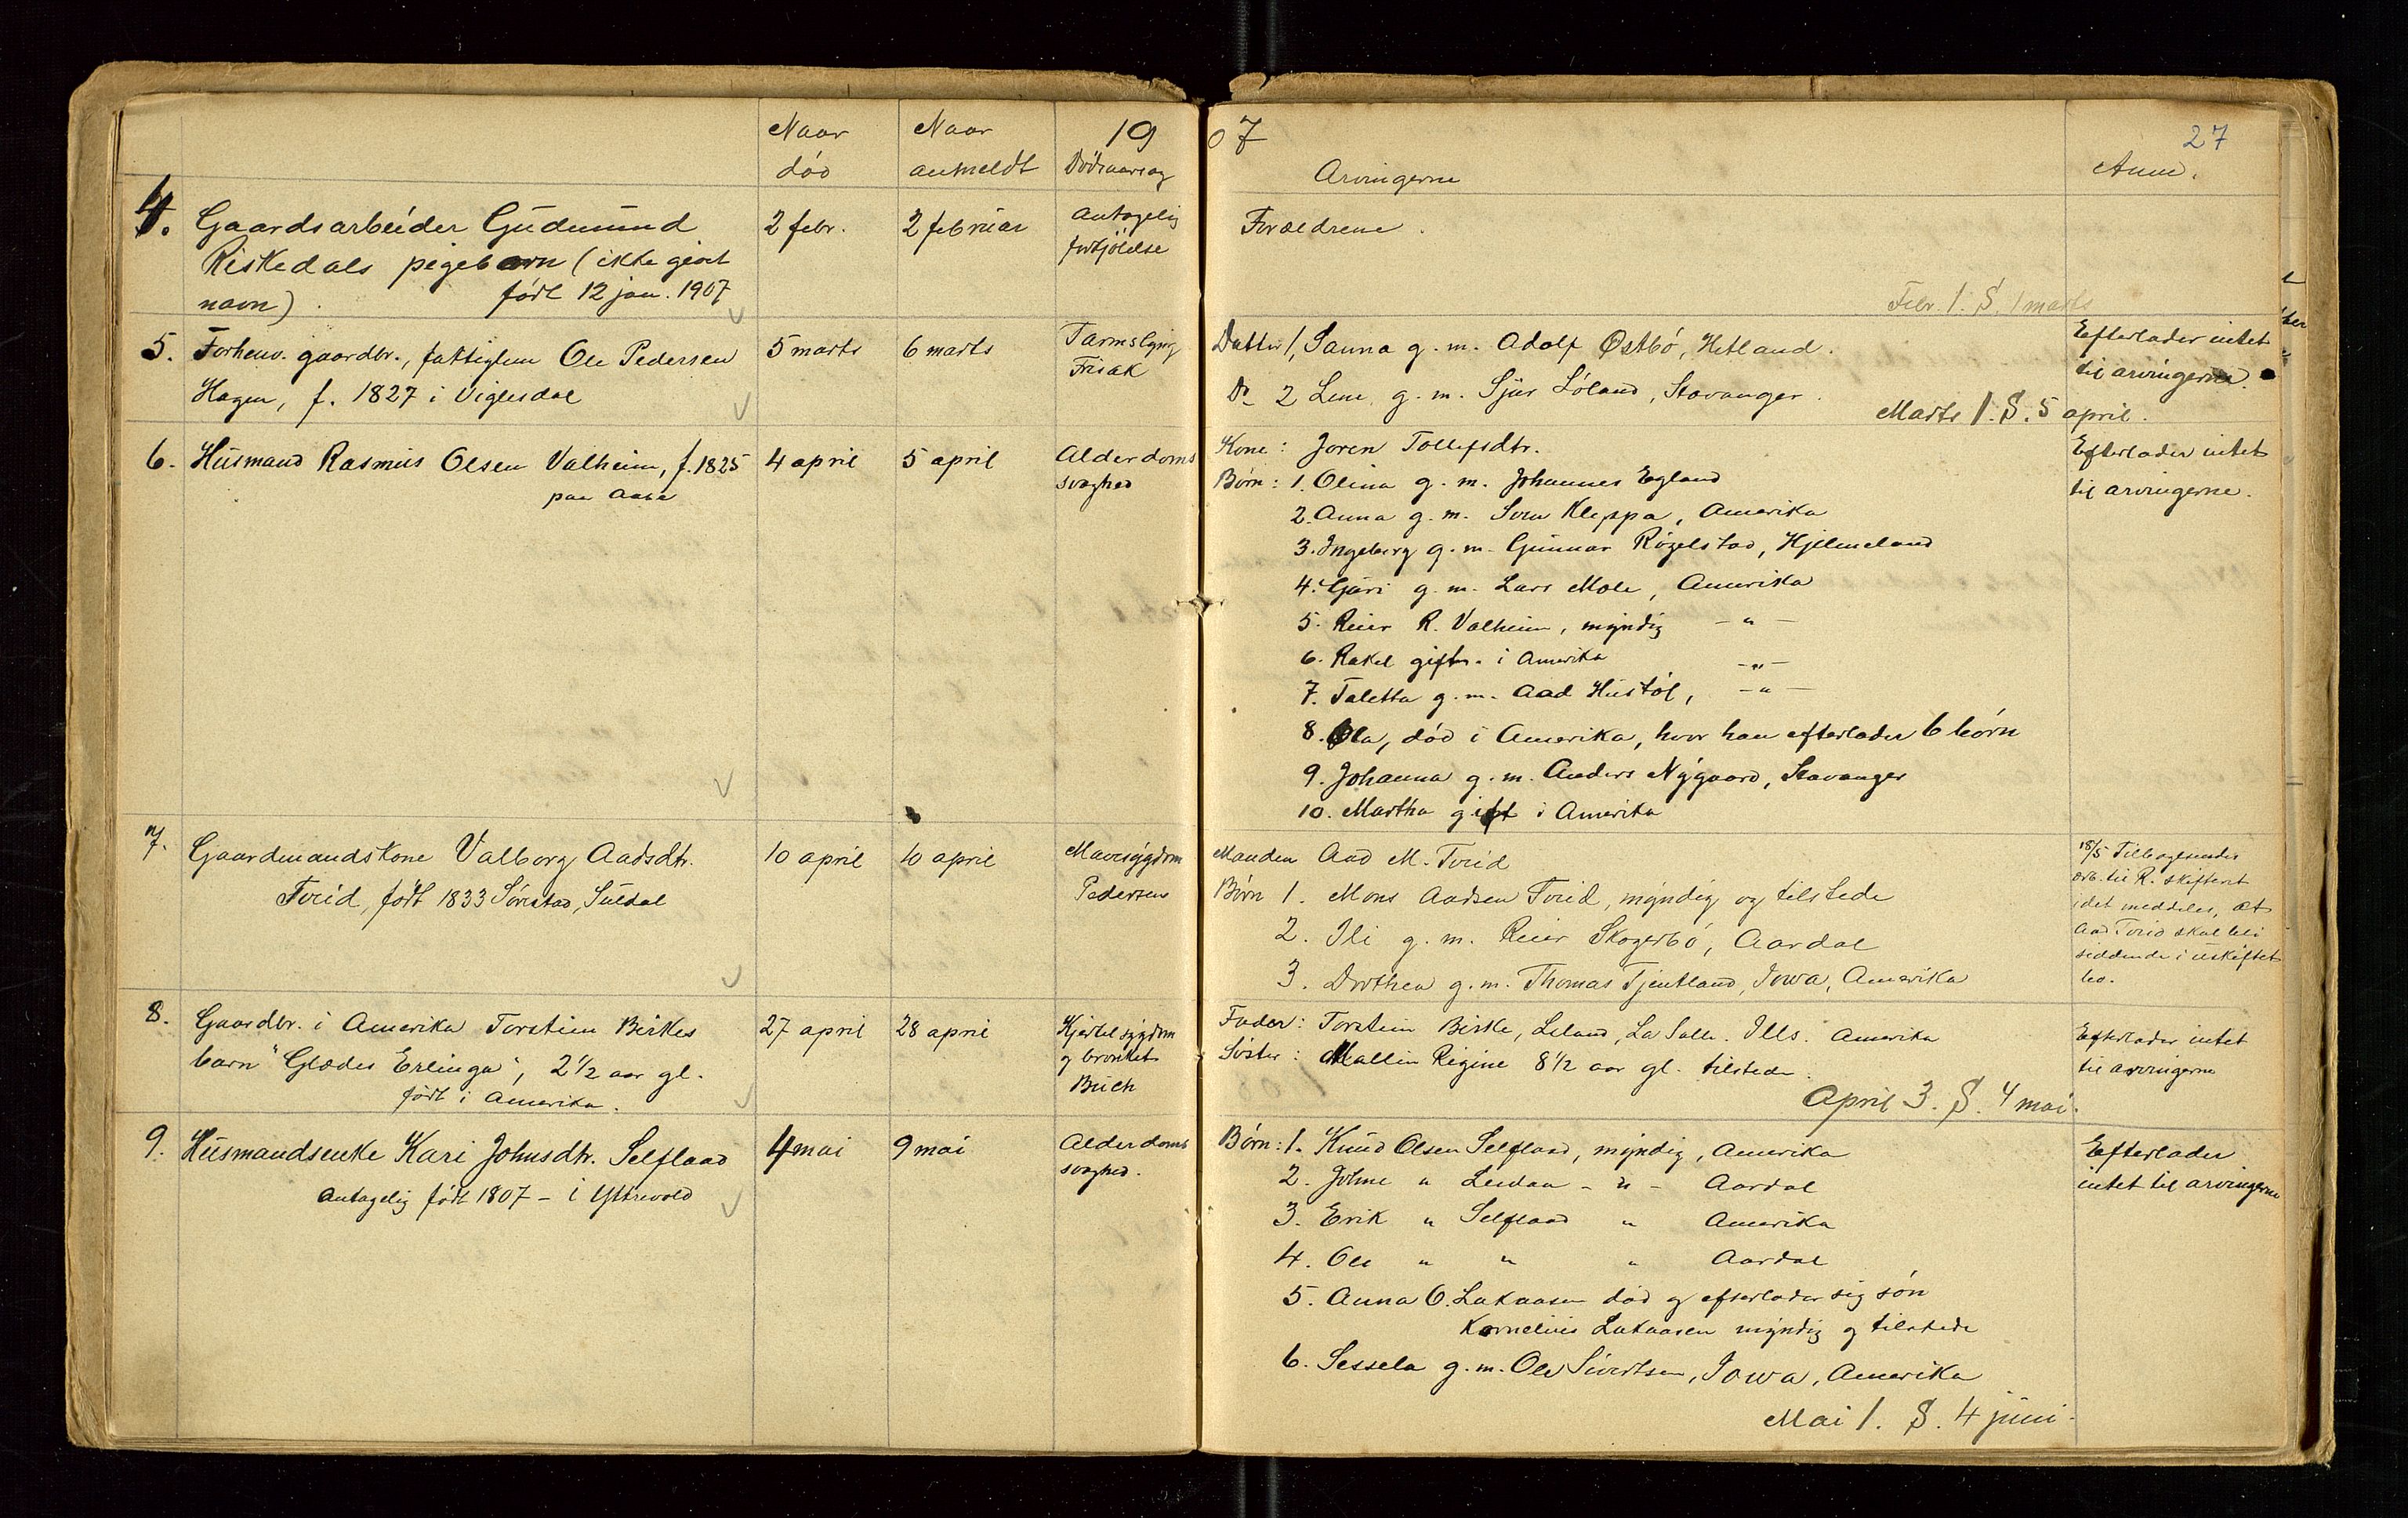 Naar Naar 19 07 27
død anmeldt Dödsaarsag Arvingerne Anm.
4. Gaardsarbeider Gudmund 2 febr. 2 februar Antagelig Forældrene.
Riskedals pigebarn (ikke givet forkjölelse
navn). født 12 jan. 1907
Febr. 1. S. 1 marts
5. Forhenv. gaardbr., fattiglem Ole Pedersen 5 marts 6 marts Tarmslyng Datter 1, Sanna g. m. Adolf Østbö, Hetland. Efterlader intet
Hagen, f. 1827 i Viglesdal Frisak Do 2 Lene g. m. Sjur Löland, Stavanger. til arvingerne.
Marts 1. S. 5 april.
6. Husmand Rasmus Olsen Valheim, f. 1825 4 april 5 april Alderdoms Kone: Joren Tollefsdtr. Efterlader intet
paa svaghed Børn: 1. Olina g. m. Johannes Egland til arvingerne.
2. Anna g. m. Sven Kleppa, Amerika
3. Ingeborg g. m. Gunnar Rögelstad, Hjelmeland
4. Guri g. m. Lars Mole, Amerika
5. Reier R. Valheim, myndig - " -
6. Rakel gift i Amerika - " -
7. Taletta g. m. Aad Hustöl, - " -
8. Ola, død i Amerika, hvor han efterlader 6 børn
9. Johanna g. m. Anders Nygaard, Stavanger
10. Martha gift i Amerika
7. Gaardmandskone Valborg Aadsdtr. 10 april 10 april Mavesygdom Manden Aad M. Tveid 18/5 Tilbagesendes
Tveid, født 1833 Sörestad, Suldal Pedersen Børn 1. Mons Aadsen Tveid, myndig og tilstede arb. til R. skifteret
idet meddeles, at
2. Ili g. m. Reier Skogerbö, Aardal Aad Tveid skal bli
siddende i uskiftet
3. Dorthea g. m. Thomas Tjentland, Iowa, Amerika bo.
8. Gaardbr. i Amerika Torstein Birkes 27 april 28 april Hjertelsygdom Fader: Torstein Birke, Leland, La Salle. Ills. Amerika Efterlader intet
barn "Glædes Erlinga", 2 1/2 aar gl. og bronkit Søster: Mallin Regine 8 1/2 aar gl. tilstede. til arvingerne
født i Amerika. Buch
April 3. S. 4 mai.
9. Husmandsenke Kari Johnsdtr. Selfland 4 mai 9 mai Alderdoms Børn: 1. Knud Olsen Selfland, myndig, Amerika Efterlader
antagelig født 1807 - i Yttrevold svaghed. 2. Johne " Leidan - " - Aardal intet til arvingerne
3. Erik " Selfland " Amerika
4. Ole " " " Aardal
5. Anna O. Lukaasen død og efterlader sig søn
Kornelius Lukaasen myndig og tilstede
6. Sessela g. m. Ole Sivertsen, Iowa, Amerika
Mai 1. S. 4 juni.